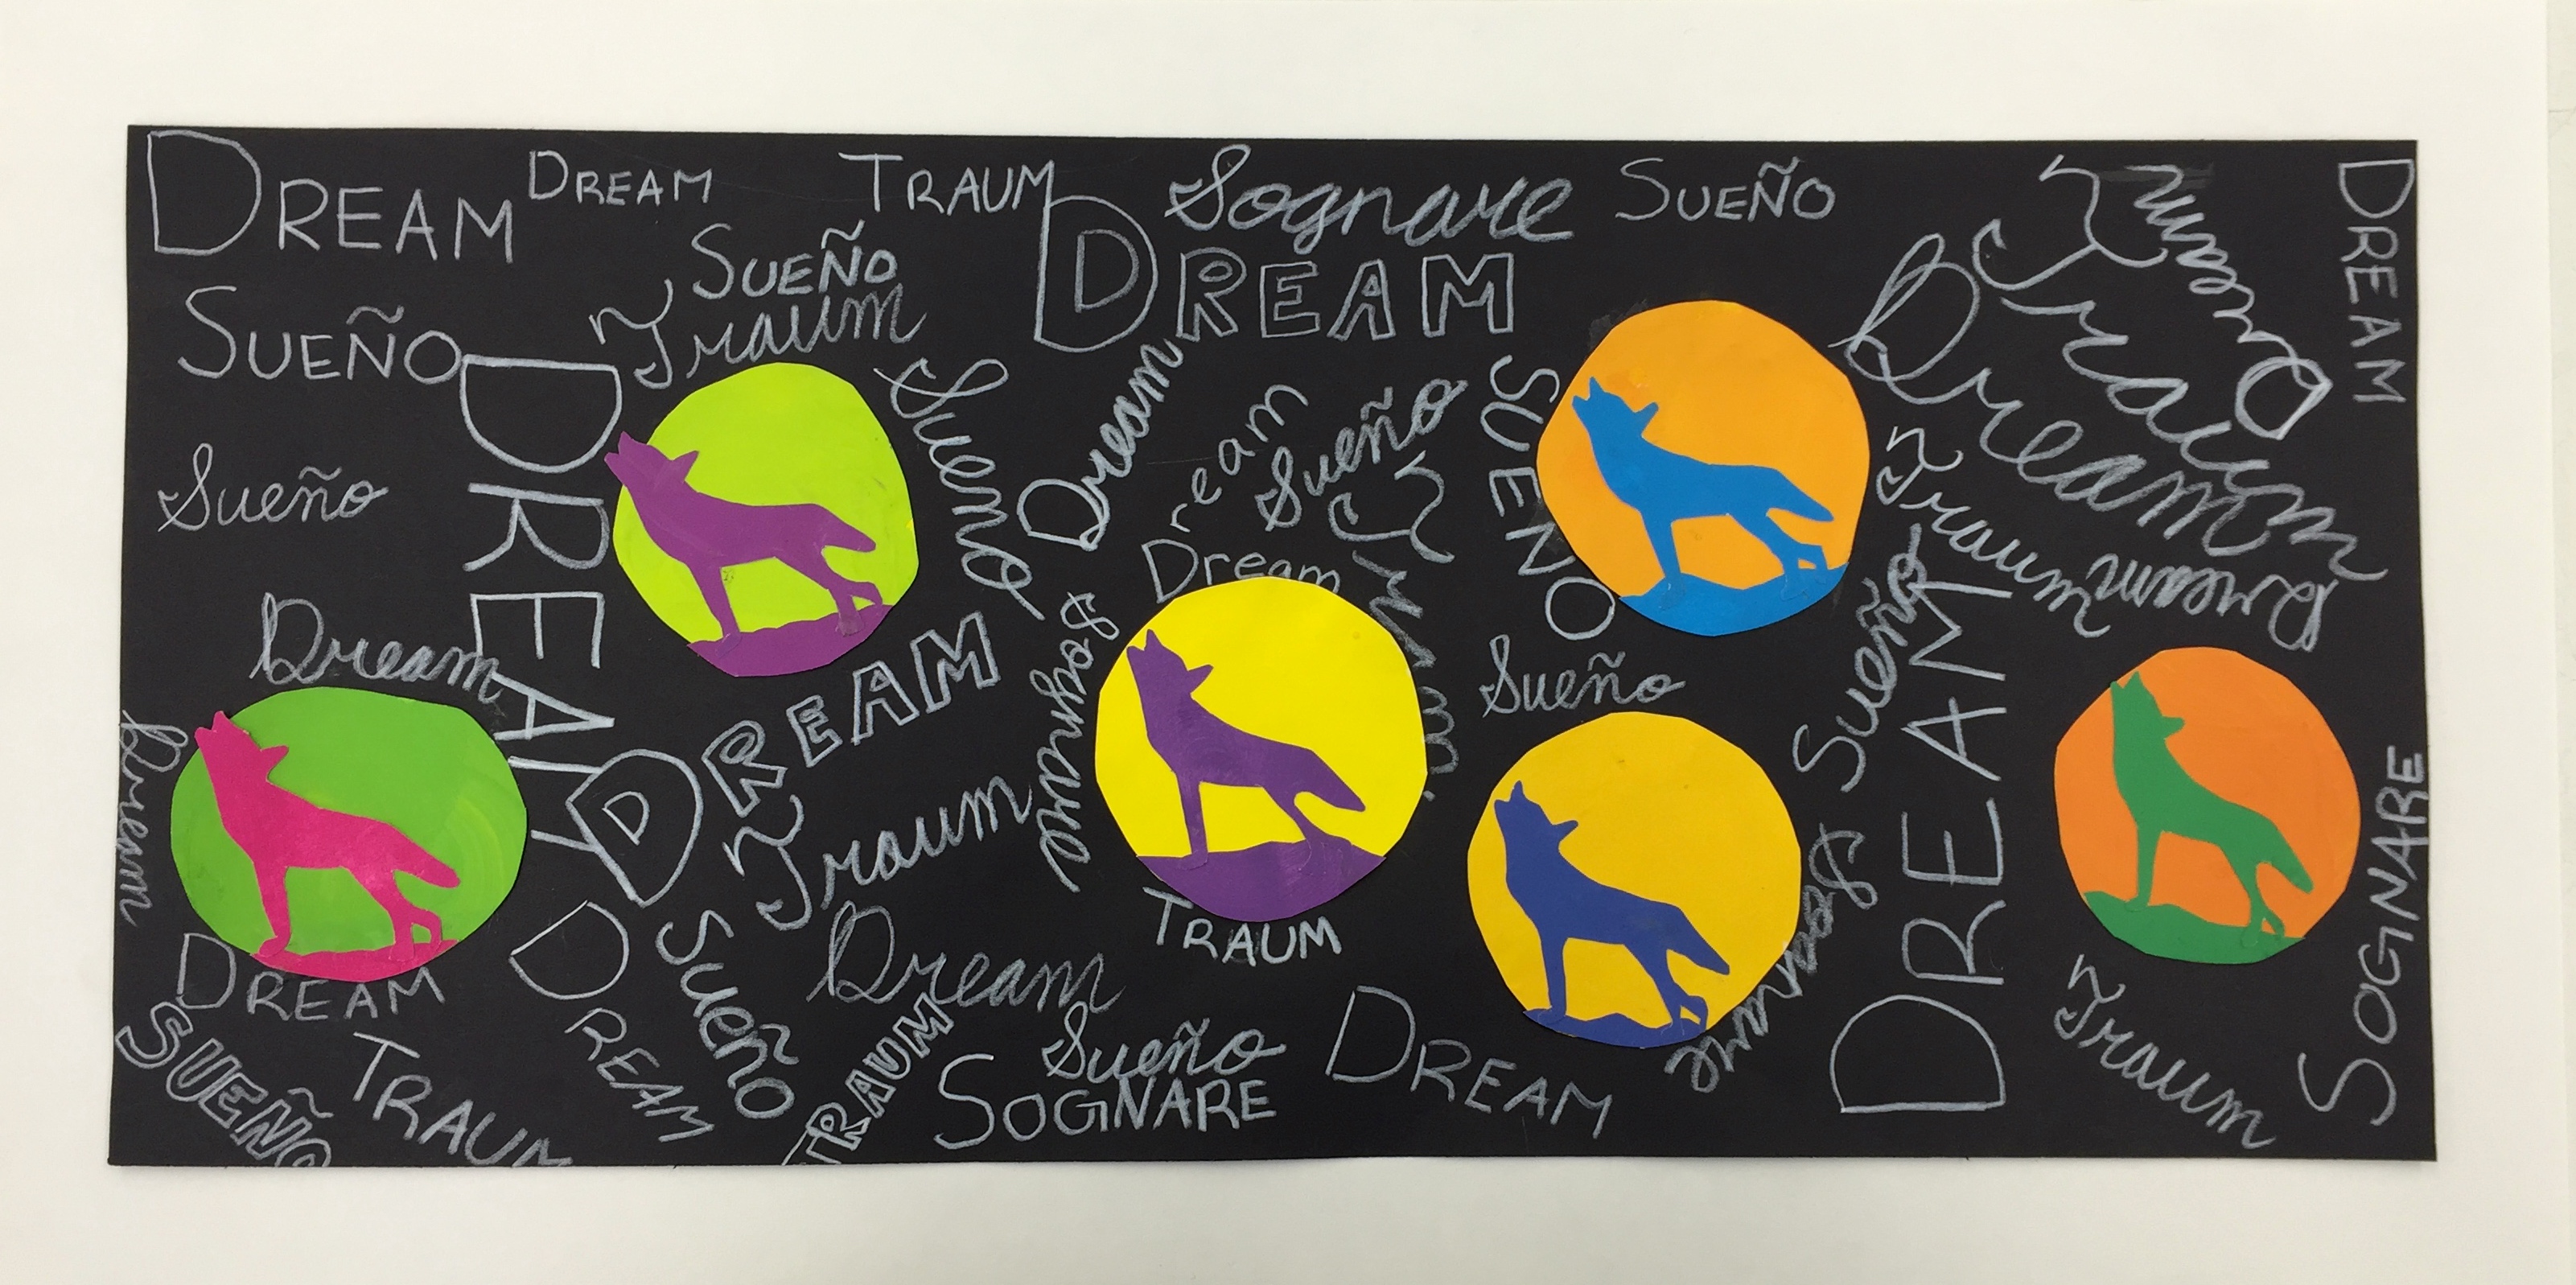 DREAM
DREAM
TRAUM
Sognare
SUEÑO
Traum
DREAM
SUEÑO
Traum
DREAM
Dream
Traum
SUEÑO
DREAM
Sueño
Dream
Dream
Sueño
Traum
SUEÑO
Traum
Dream
Sueño
Dream
Dream
DREAM
Sognare
Sueño
Sueño
DREAM
Dream
Traum
DREAM
Sueño
Dream
TRAUM
Sognare
SOGNARE
Traum
DREAM
SUEÑO
TRAUM
DREAM
TRAUM
Sueño
SOGNARE
DREAM